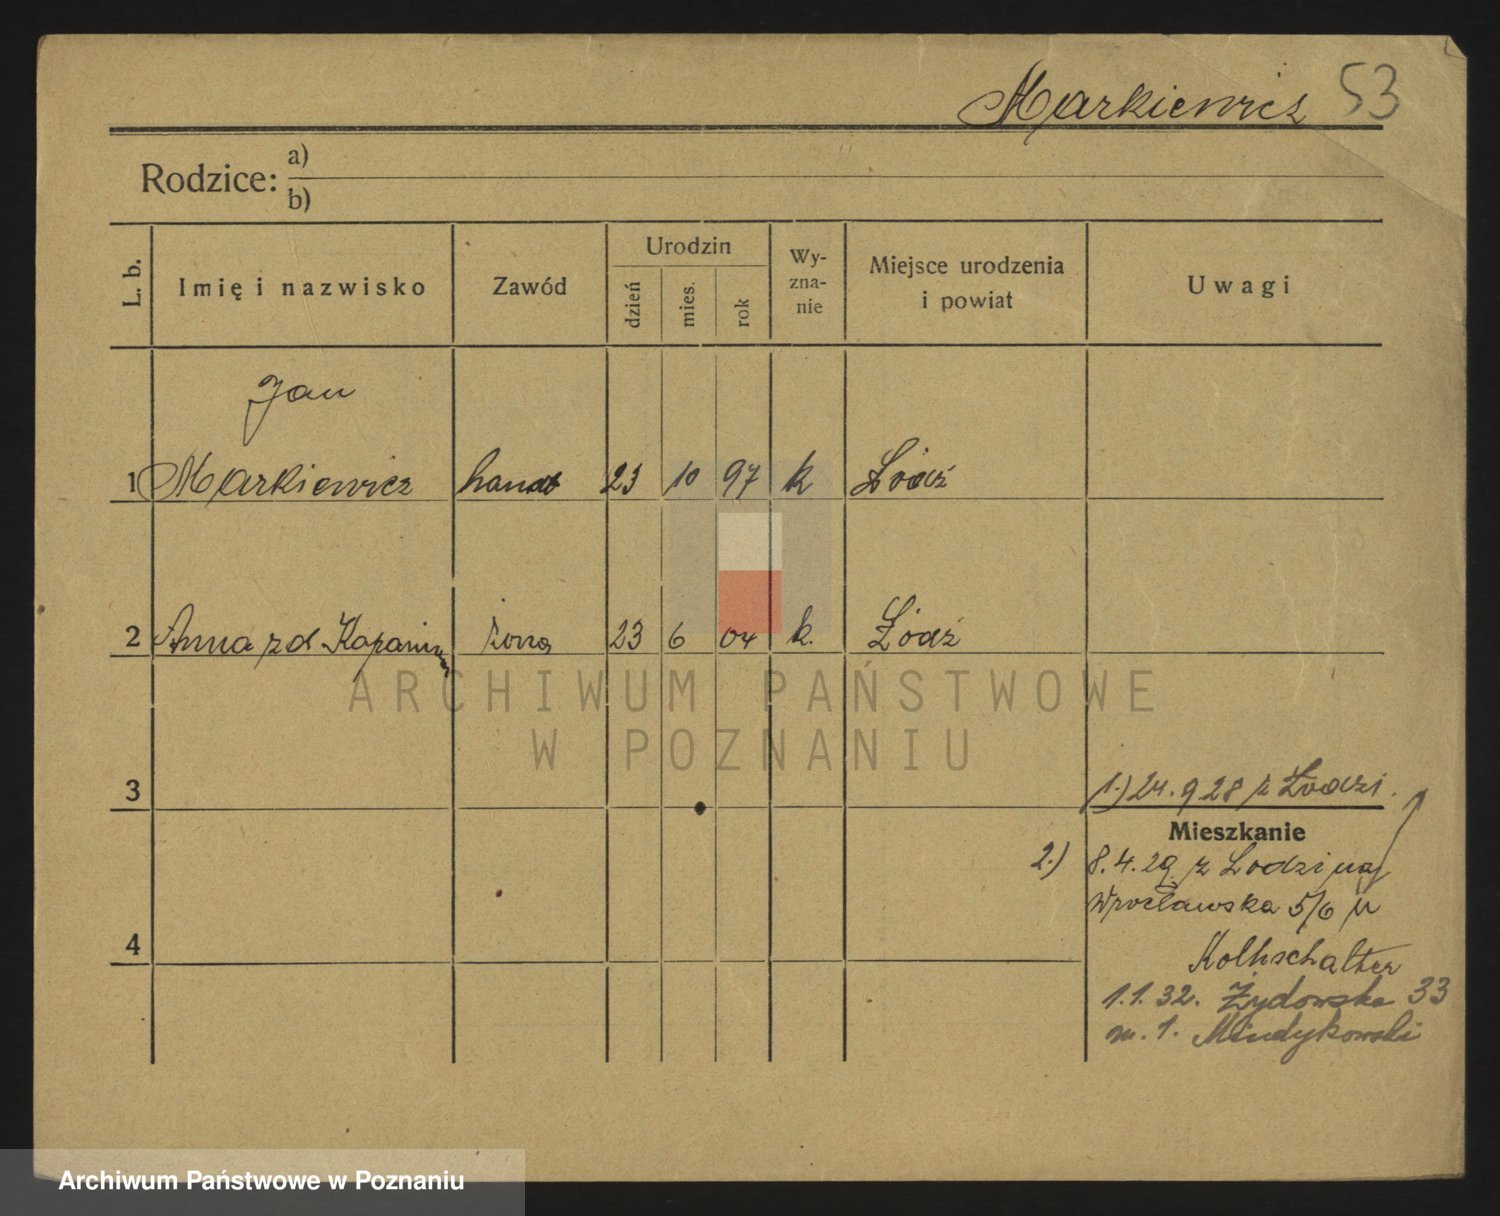 Markiewicz 53
Rodzice: a)
b)
L. b.
Imię i nazwisko
Zawód
Urodzin
dzień
mies.
rok
Wy-
zna-
nie
Miejsce urodzenia
i powiat
Uwagi
Jan
1 Markiewicz handl 23 10 97 k Łódź
2 Anna z d. żona 23 6 04 k. Łódź
ARCHIWUM PAŃSTWOWE
W POZNANIU
3
1.) 24.9 28 z Łodzi.
Mieszkanie
2.) 8.4.29. z Łodzi na
Wrocławska 5/6 u
4
1.1.32. Żydowska 33
m. 1. Mindykowski
Archiwum Państwowe w Poznaniu